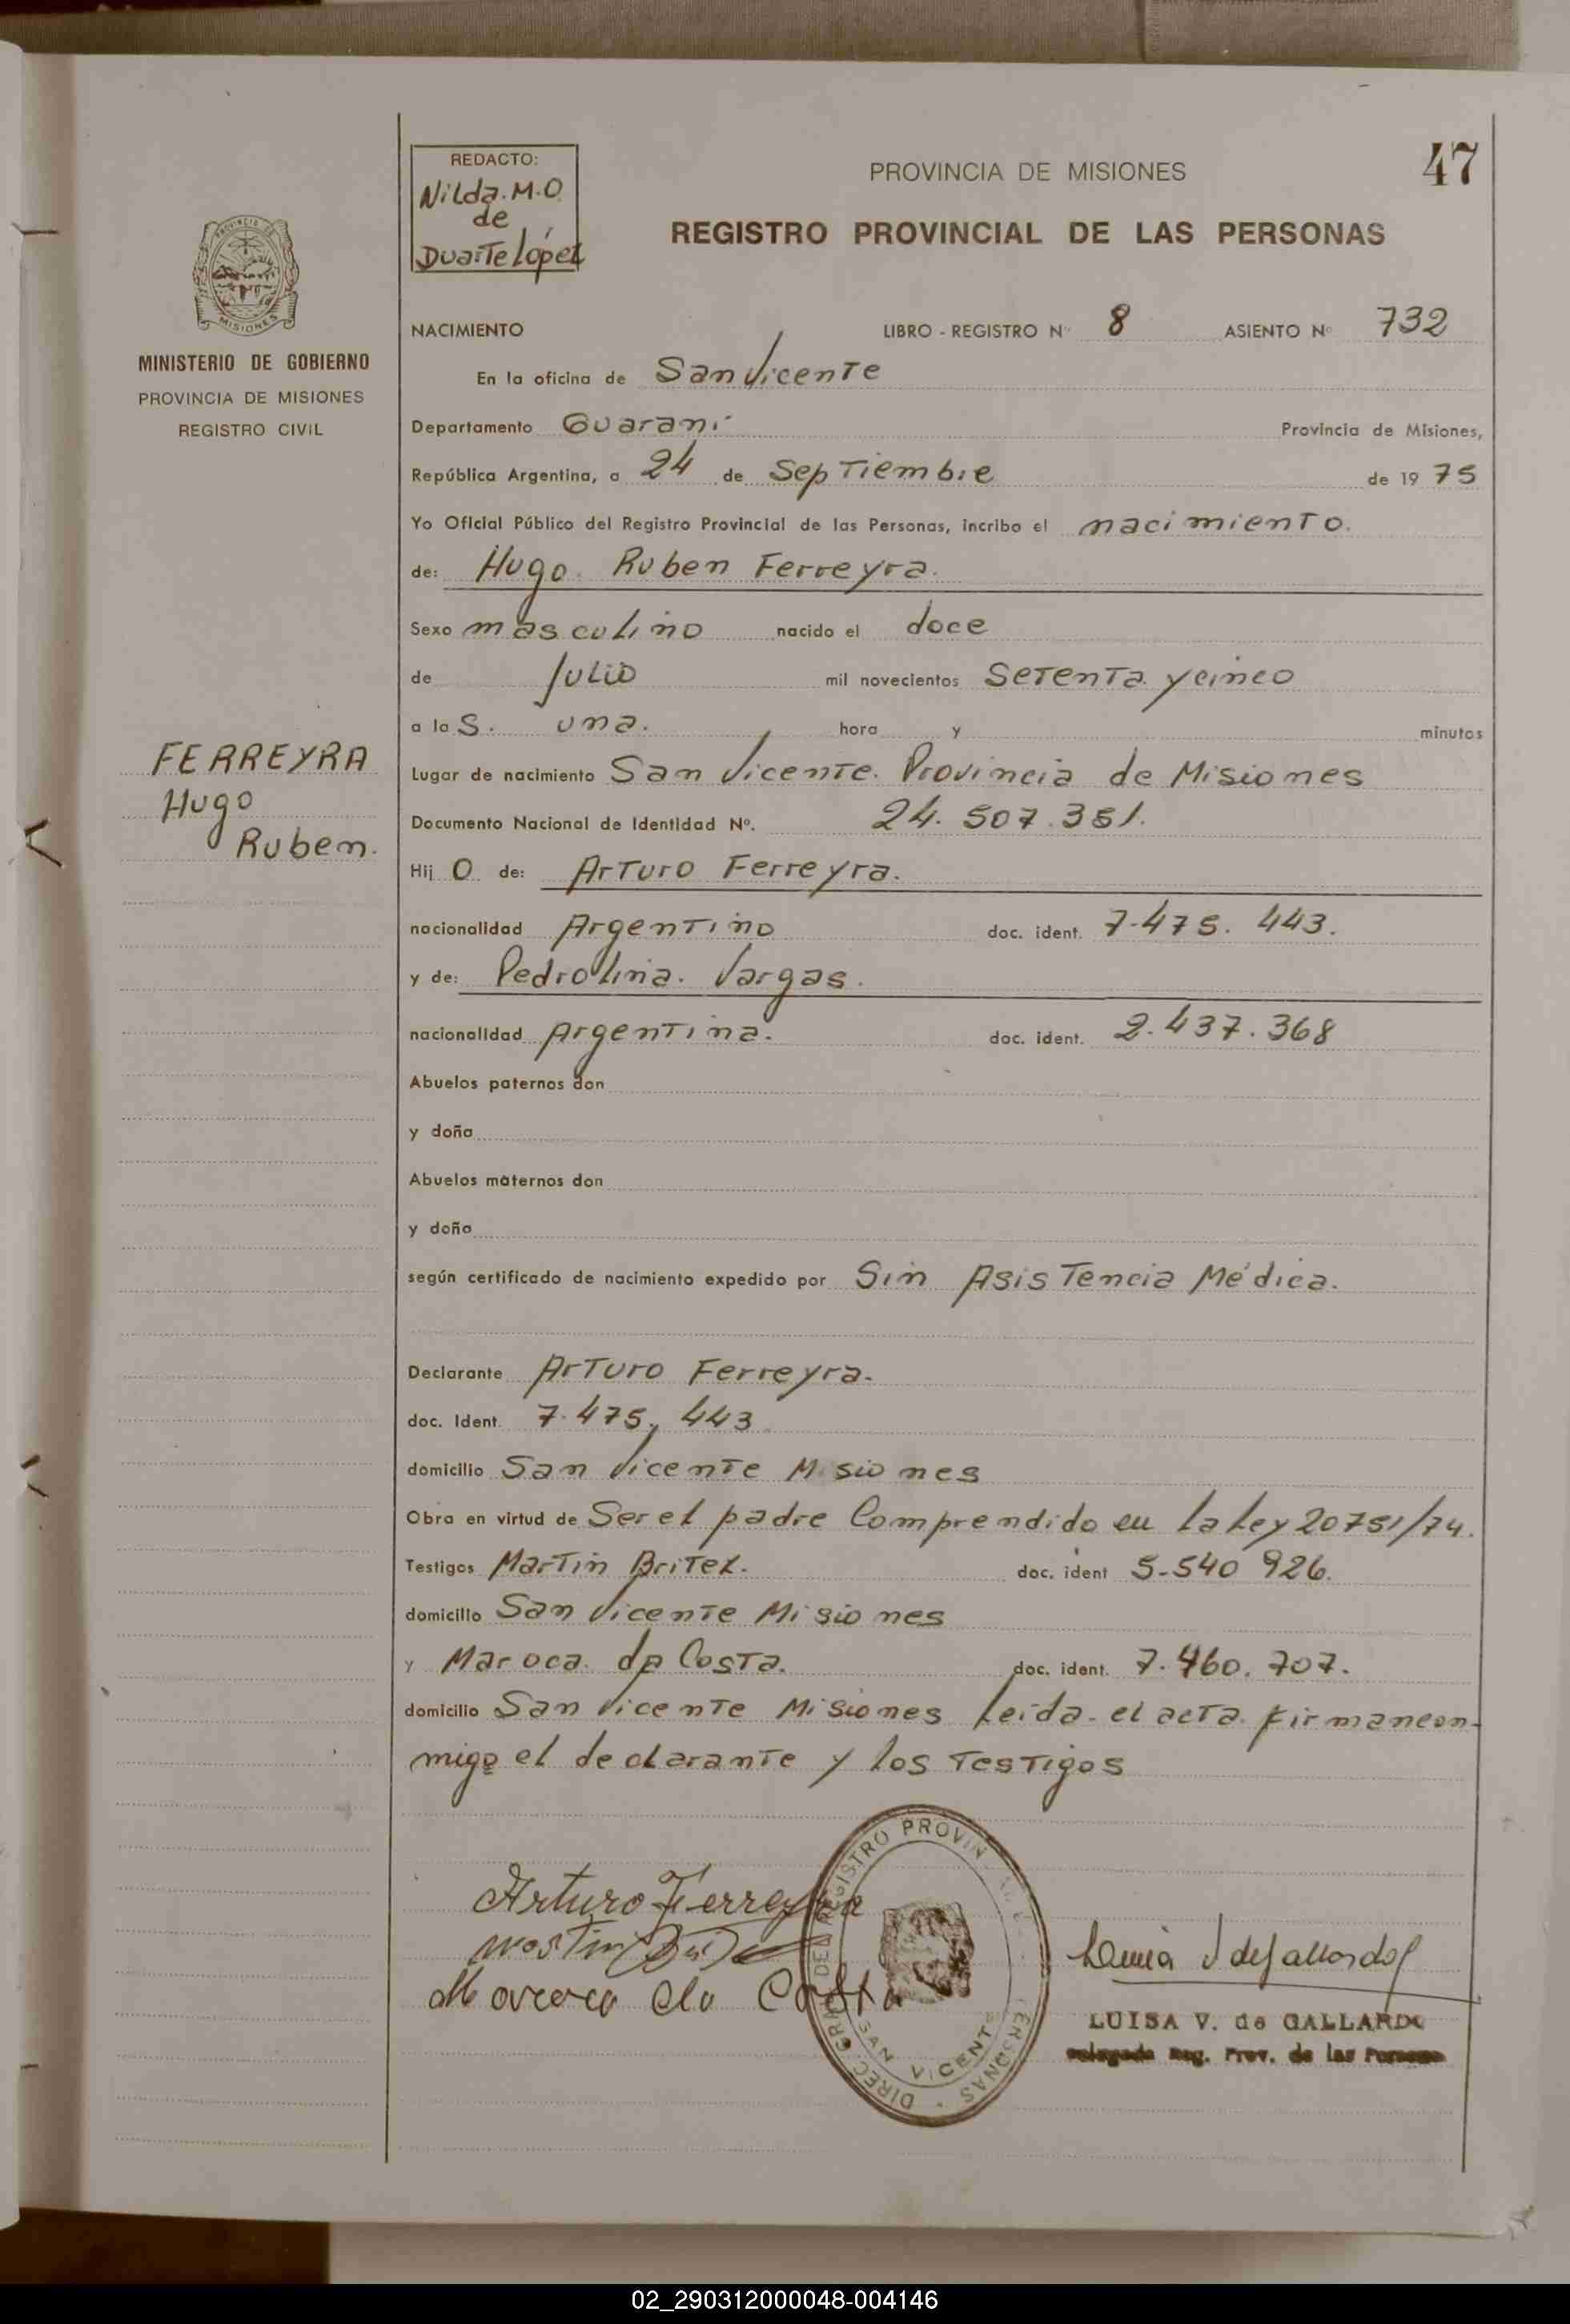 47
REDACTO:
Nilda. M.O.
de
Duarte López
PROVINCIA DE MISIONES
REGISTRO PROVINCIAL DE LAS PERSONAS
MISIONES
MINISTERIO DE GOBIERNO
PROVINCIA DE MISIONES
REGISTRO CIVIL
NACIMIENTO LIBRO - REGISTRO Nº 8 ASIENTO Nº 732
En la oficina de San Vicente
Departamento Guaraní Provincia de Misiones,
República Argentina, a 24 de Septiembre de 19 75
Yo Oficial Público del Registro Provincial de las Personas, incribo el nacimiento.
de: Hugo. Ruben Ferreyra.
Sexo masculino nacido el doce
de Julio mil novecientos Setenta y cinco
a la S. una. hora y minutos
FERREYRA
Hugo
Ruben.
Lugar de nacimiento San Vicente. Provincia de Misiones
Documento Nacional de Identidad Nº. 24.507.351.
Hij o de: Arturo Ferreyra.
nacionalidad Argentino doc. ident. 7.475.443.
y de: Pedrolina. Vargas.
nacionalidad Argentina. doc. ident. 2.437.368
Abuelos paternos don
y doña
Abuelos maternos don
y doña
según certificado de nacimiento expedido por Sin Asistencia Médica.
Declarante Arturo Ferreyra.
doc. Ident. 7.475.443
domicilio San Vicente Misiones
Obra en virtud de Ser el padre Comprendido en la Ley 20751/74.
Testigos Martin Britez. doc. ident 5.540 926.
domicilio San Vicente Misiones
y Maroca. da Costa. doc. ident. 7.460.707.
domicilio San Vicente Misiones Leída el acta. firman con-
migo el declarante y los Testigos
Arturo Ferreyra
Maroca da Costa
DIREC. GRAL DEL REGISTRO PROVIN PERSONAS
SAN VICENTE
LUISA V. de GALLARDO
Delegada Reg. Prov. de las Personas
02_290312000048-004146